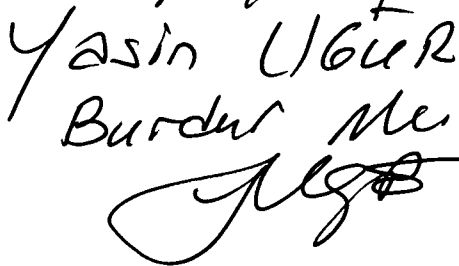 Yasin UĞUR
Burdur Me